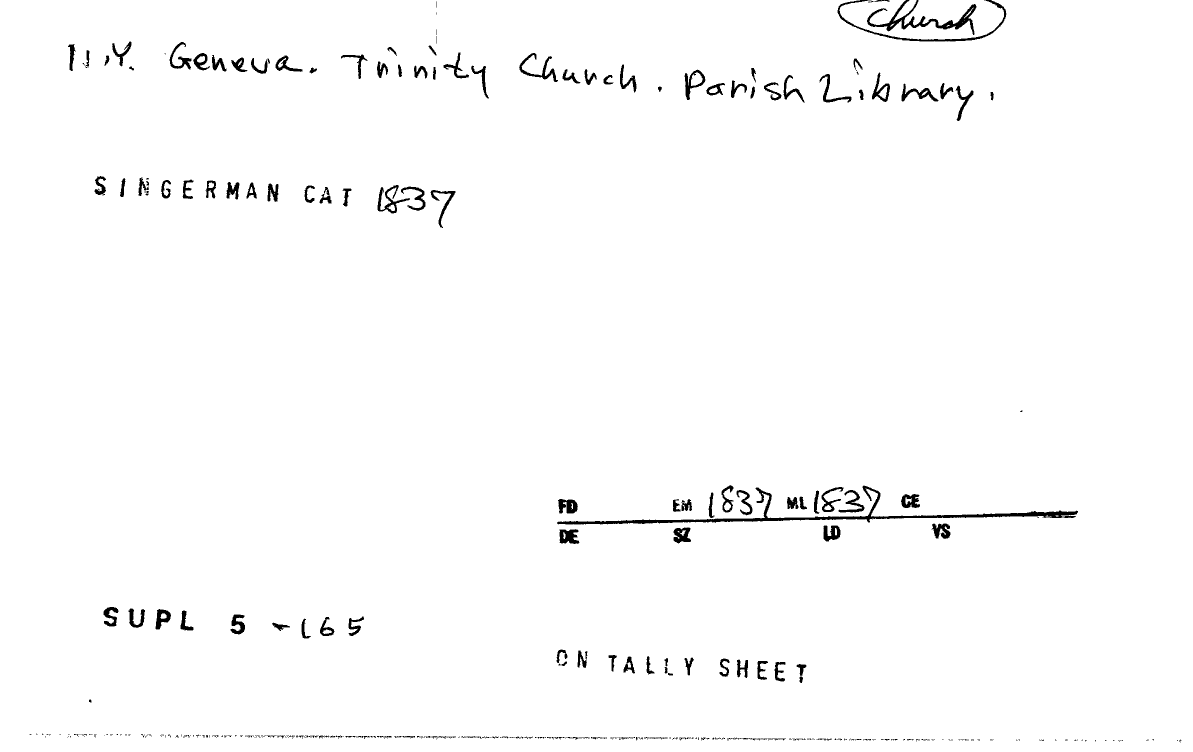 Church
N.Y. Geneva. Trinity Church. Parish Library.
SINGERMAN CAT 1837
FD EM 1837 ML 1837 CE
DE SZ LD VS
SUPL 5 -165
ON TALLY SHEET